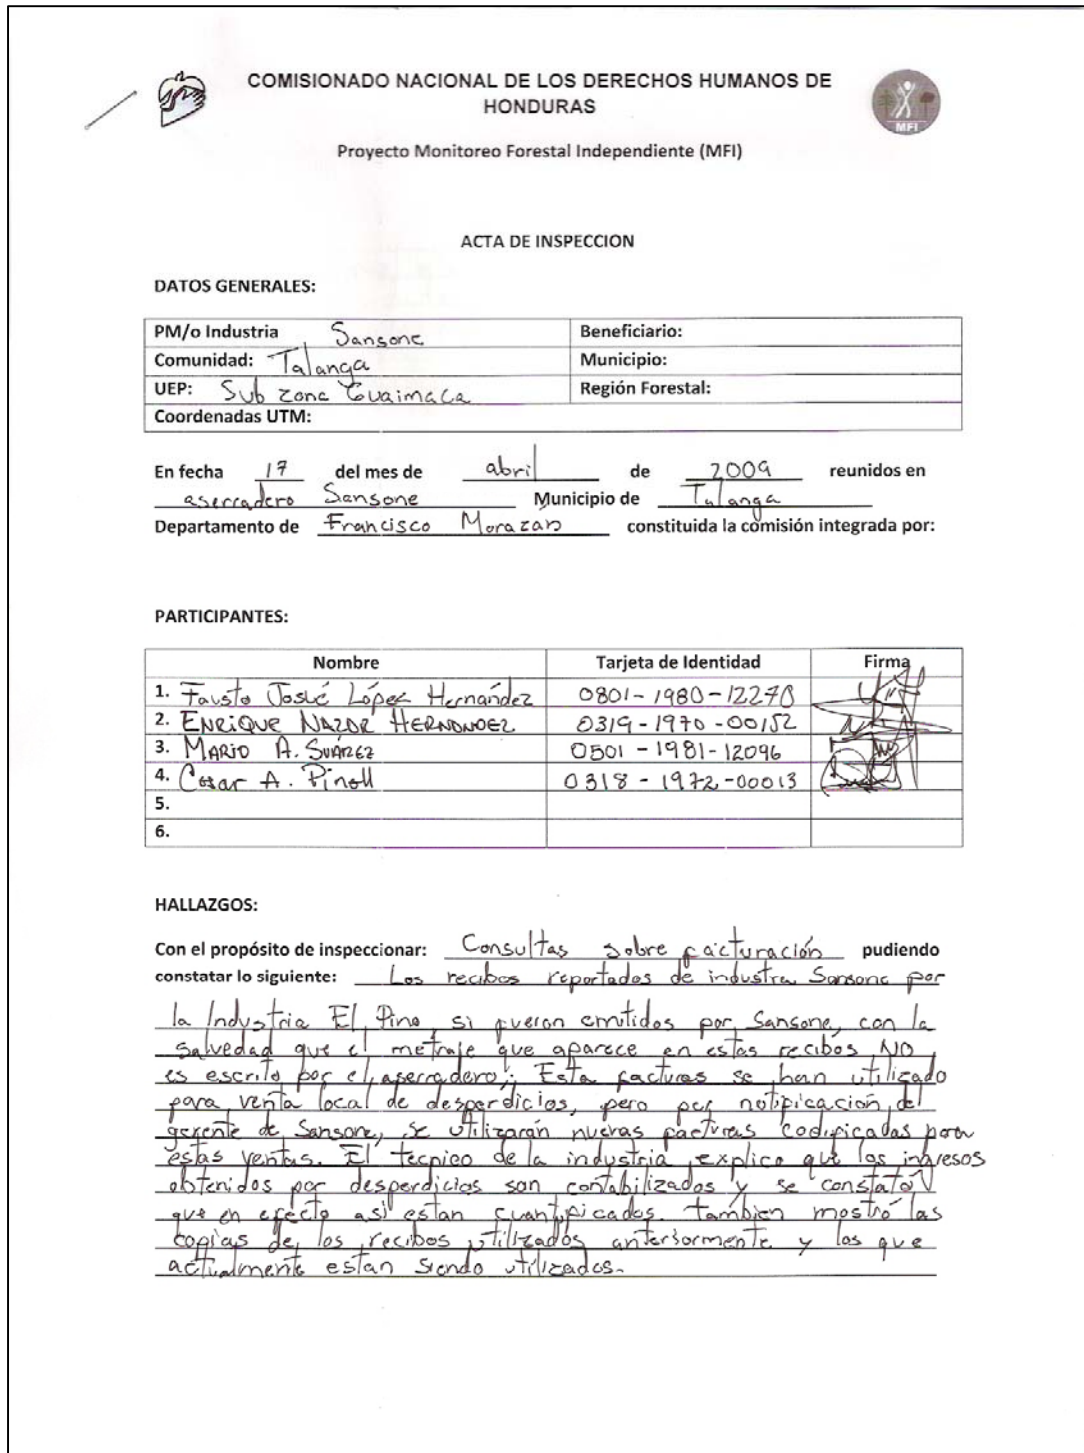 COMISIONADO NACIONAL DE LOS DERECHOS HUMANOS DE
HONDURAS
MFI
Proyecto Monitoreo Forestal Independiente (MFI)
ACTA DE INSPECCION
DATOS GENERALES:
PM/o Industria Sansone Beneficiario:
Comunidad: Talanga Municipio:
UEP: Sub zona Guaimaca Región Forestal:
Coordenadas UTM:
En fecha 17 del mes de abril de 2009 reunidos en
aserradero Sansone Municipio de Talanga
Departamento de Francisco Morazán constituida la comisión integrada por:
PARTICIPANTES:
Nombre Tarjeta de Identidad Firma
1. Fausto Josué López Hernández 0801-1980-12270
2. ENRIQUE NAZAR HERNANDEZ 0319-1970-00152
3. MARIO A. SUÁREZ 0501-1981-12096
4. Cesar A. Pinell 0318-1972-00013
5.
6.
HALLAZGOS:
Con el propósito de inspeccionar: Consultas sobre facturación pudiendo
constatar lo siguiente: Los recibos reportados de industria Sansone por
la Industria El Pino, si fueron emitidos por Sansone, con la
salvedad que el metraje que aparece en estos recibos NO
es escrito por el aserradero; Esta facturas se han utilizado
para venta local de desperdicios, pero por notificación del
gerente de Sansone, se utilizarán nuevas facturas codificadas para
estas ventas. El tecnico de la industria explico que los ingresos
obtenidos por desperdicios son contabilizados y se constató
que en efecto asi estan cuantificados. tambien mostró las
copias de los recibos utilizados anteriormente y los que
actualmente estan siendo utilizados.